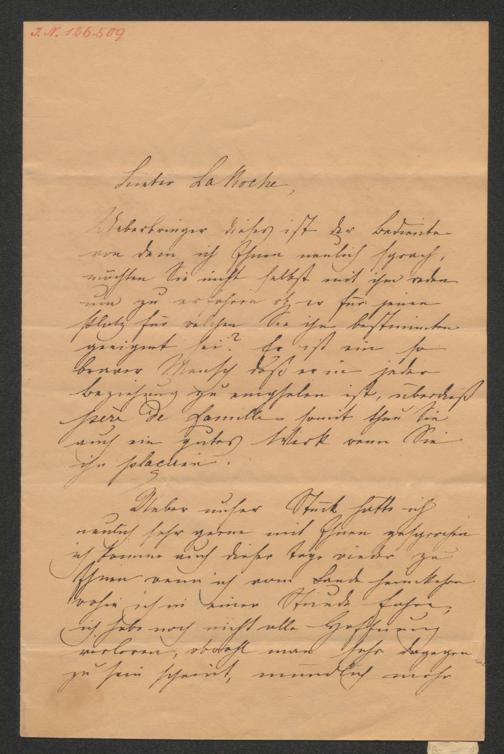 J. N. 126.509
Lieber La Roche,
Ueberbringer dieses ist der Bediente
von dem ich Ihnen neulich sprach,
möchten Sie nicht selbst mit ihm reden
um zu erfahren ob er für jenen
Platz für welchen Sie ihn bestimmten
geeignet sei? Er ist ein so
braver Mensch daß er in jeder
Beziehung zu empfehlen ist, überdieß
père de famille – somit thun Sie
auch ein gutes Werk wenn Sie
ihn placiren.
Ueber unser Stück hätte ich
neulich sehr gerne mit Ihnen gesprochen
ich komme auch dieser Tage wieder zu
Ihnen wenn ich vom Lande heimkehre
wohin ich in einer Stunde fahre,
ich habe noch nicht alle Hoffnung
verloren, obwohl man sehr dagegen
zu sein scheint, mündlich mehr